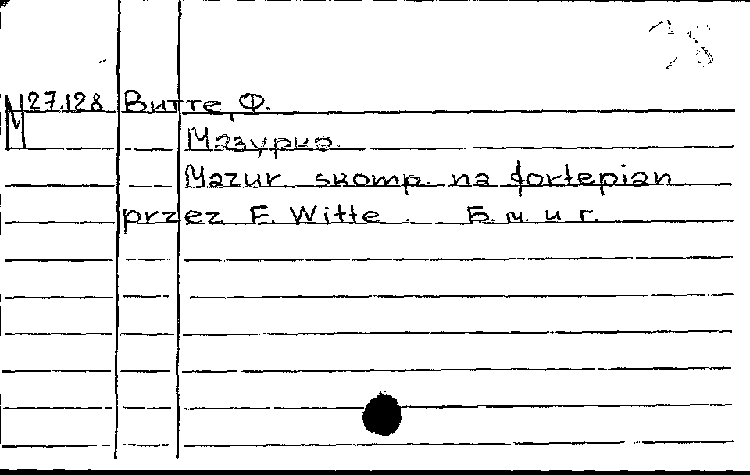 38
М 27.128 Витте, Ф.
Мазурка.
Mazur skomp. na fortepian
przez F. Witte. Б. м. и г.